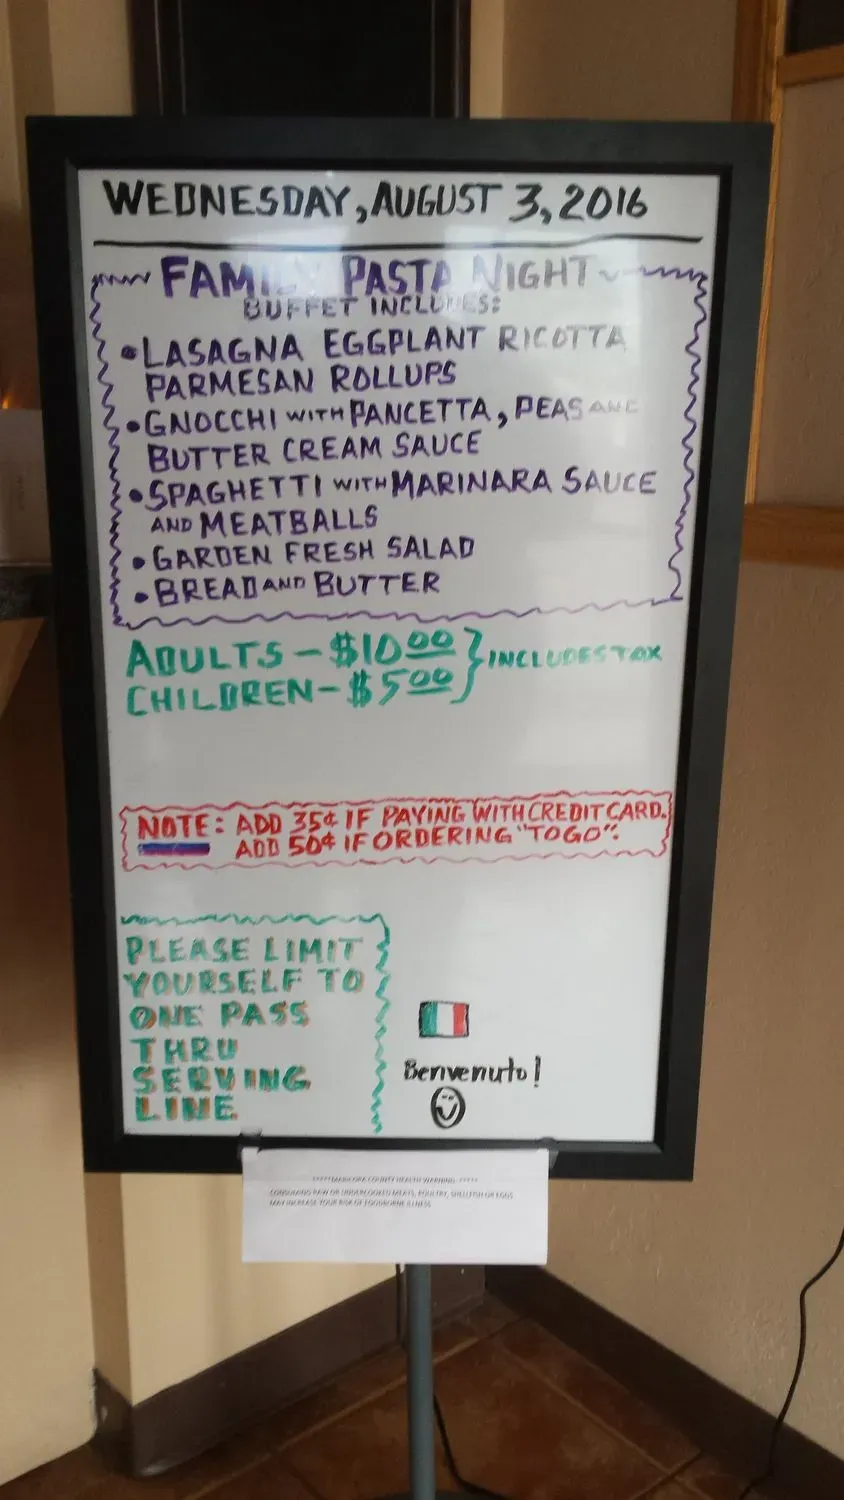 WEDNESDAY, AUGUST 3, 2016
FAMILY PASTA NIGHT
BUFFET INCLUDES:
• LASAGNA EGGPLANT RICOTTA
PARMESAN ROLLUPS
• GNOCCHI WITH PANCETTA, PEAS AND
BUTTER CREAM SAUCE
• SPAGHETTI WITH MARINARA SAUCE
AND MEATBALLS
• GARDEN FRESH SALAD
• BREAD AND BUTTER
ADULTS - $10.00 } INCLUDES TAX
CHILDREN - $5.00
NOTE: ADD 35¢ IF PAYING WITH CREDIT CARD.
ADD 50¢ IF ORDERING "TO GO".
PLEASE LIMIT
YOURSELF TO
ONE PASS
THRU
SERVING
LINE
Benvenuto!
*****MARICOPA COUNTY HEALTH WARNING *****
CONSUMING RAW OR UNDERCOOKED MEATS, POULTRY, SHELLFISH OR EGGS
MAY INCREASE YOUR RISK OF FOODBORNE ILLNESS